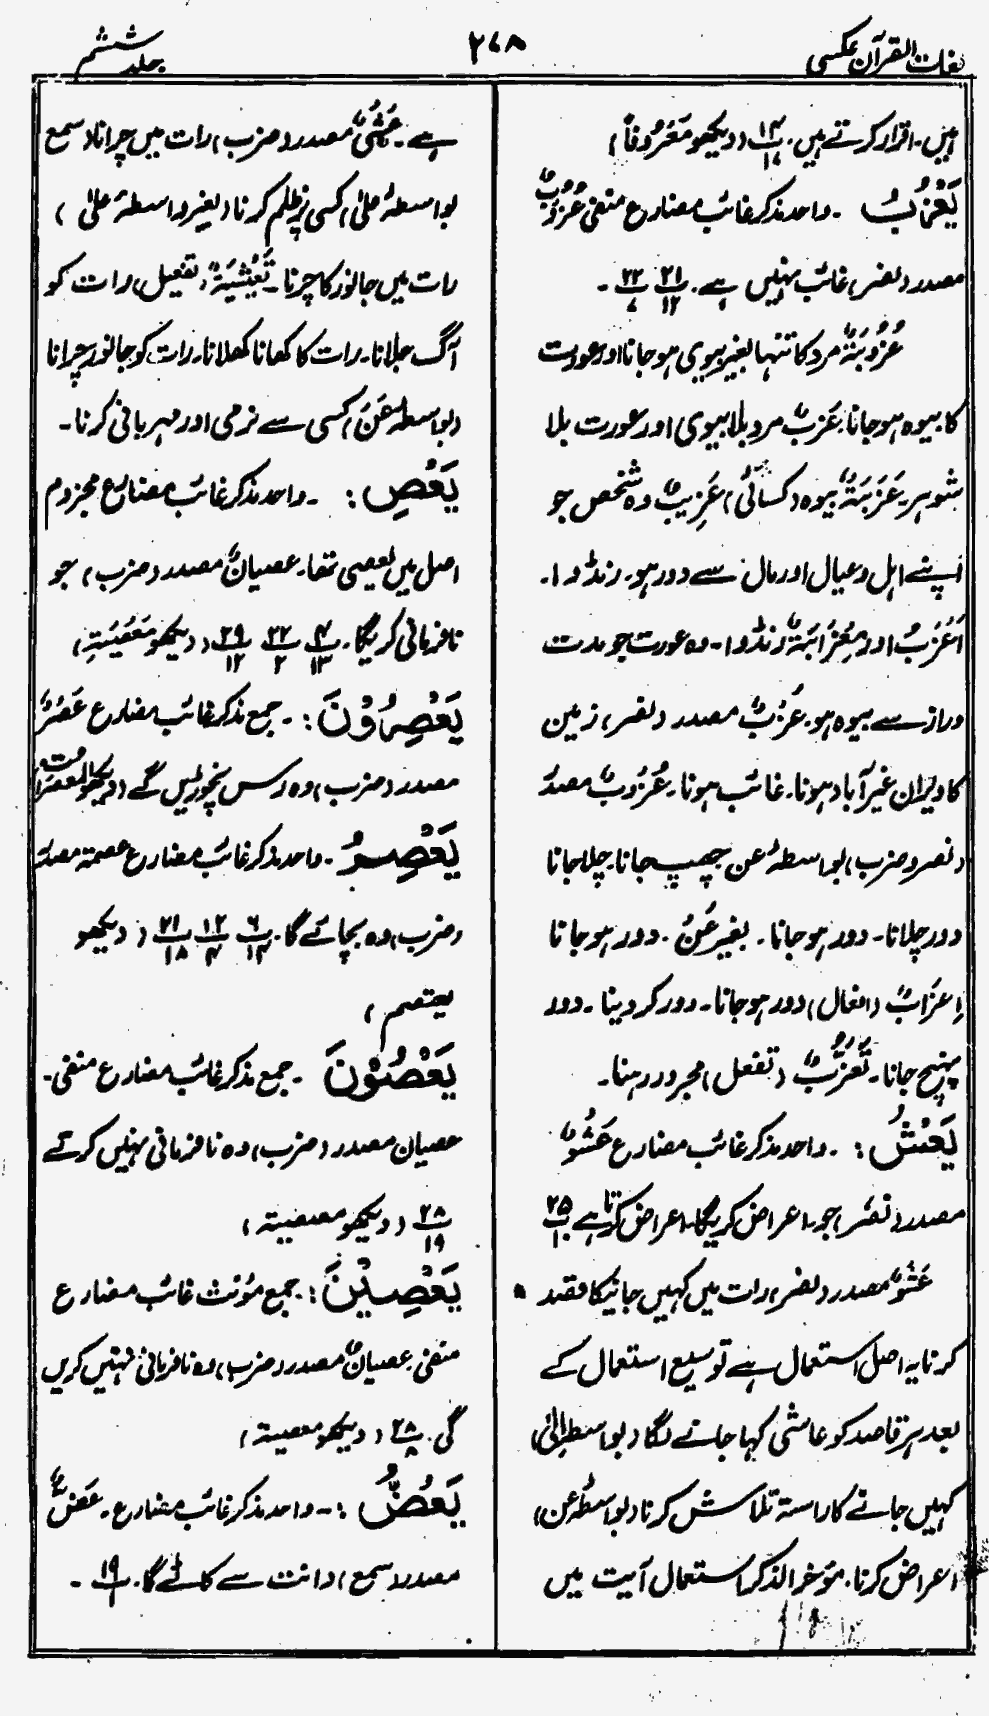 لغات القرآن عکسی
۲۷۸
جلد ششم
ہیں۔ اقرار کرتے ہیں۔ (دیکھو مَعْرُوفاً)
یَعْزُبُ ۔ واحد مذکر غائب مضارع منفی عُزُوْبٌ
مصدر (نصر) غائب نہیں ہے۔ ۲۱/۱۲ ۲۲/۷ ۔
عُزُوْبَۃٌ مرد کا تنہا بغیر بیوی ہو جانا اور عورت
کا بیوہ ہو جانا۔ عَزَبٌ مرد بلا بیوی اور عورت بلا
شوہر۔ عَزَبَۃٌ بیوہ (کسائی) عَزِیْبٌ وہ شخص جو
اپنے اہل و عیال اور مال سے دور ہو۔ رنڈوا۔
اَعْزَبُ اور مِعْزَابَۃٌ رنڈوا۔ وہ عورت جو مدت
دراز سے بیوہ ہو۔ عَزْبٌ مصدر (نصر) زمین
کا ویران غیر آباد ہونا۔ غائب ہونا۔ عُزُوْبٌ مصدر
(نصر و ضرب) بواسطۂ عن چھپ جانا۔ چلا جانا
دور چلانا۔ دور ہو جانا۔ بغیر عَنْ ۔ دور ہو جانا
اِعْزَابٌ (افعال) دور ہو جانا۔ دور کر دینا ۔ دور
پہنچ جانا۔ تَعَزُّبٌ (تفعل) مجرد رہنا۔
یَعْشُ : ۔ واحد مذکر غائب مضارع عَشْوٌ
مصدر (نصر) جو۔ اعراض کریگا۔ اعراض کرتا ہے ۲۵/۱۰
عَشْوٌ مصدر (نصر) رات میں کہیں جانیکا قصد
کرنا یہ اصل استعمال ہے توسیع استعمال کے
بعد ہر قاصد کو عاشی کہا جانے لگا (بواسطہ الیٰ)
کہیں جانے کا راستہ تلاش کرنا (بواسطۂ عن)
اعراض کرنا۔ مؤخر الذکر استعمال آیت میں
ہے۔ عَشْیٌ مصدر (ضرب) رات میں چرانا (سمع
بواسطۂ علیٰ) کسی پر ظلم کرنا (بغیر واسطۂ علیٰ )
رات میں جانور کا چرنا۔ تَعْشِیَۃٌ (تفعیل) رات کو
آگ جلانا۔ رات کا کھانا کھلانا۔ رات کو جانور چرانا
(بواسطہ عَنْ) کسی سے نرمی اور مہربانی کرنا۔
یَعْصِ : ۔ واحد مذکر غائب مضارع مجزوم
اصل میں یعصی تھا۔ عصیانٌ مصدر (ضرب) جو
نافرمانی کریگا۔ ۴/۱۳ ۲۲/۲ ۲۹/۱۲ (دیکھو مَعْصِیَتِ)
یَعْصِرُوْنَ : ۔ جمع مذکر غائب مضارع عَصْرٌ
مصدر (ضرب) وہ رس نچوڑیں گے (دیکھو المعصرات)
یَعْصِمُ ۔ واحد مذکر غائب مضارع عصمۃ مصدر
(ضرب) وہ بچائے گا۔ ۶/۱۴ ۱۲/۴ ۲۱/۱۸ (دیکھو
یعتصم)
یَعْصُوْنَ ۔ جمع مذکر غائب مضارع منفی۔
عصیان مصدر (ضرب) وہ نافرمانی نہیں کرتے
۲۸/۱۹ (دیکھو معصیۃ)
یَعْصِیْنَ : جمع مؤنث غائب مضارع
منفی۔ عصیانٌ مصدر (ضرب) وہ نافرمانی نہیں کریں
گی۔ ۲۸/۸ (دیکھو معصیۃ)
یَعَضُّ : ۔ واحد مذکر غائب مضارع۔ عَضٌّ
مصدر (سمع) دانت سے کاٹے گا۔ ۱۹/۱ ۔